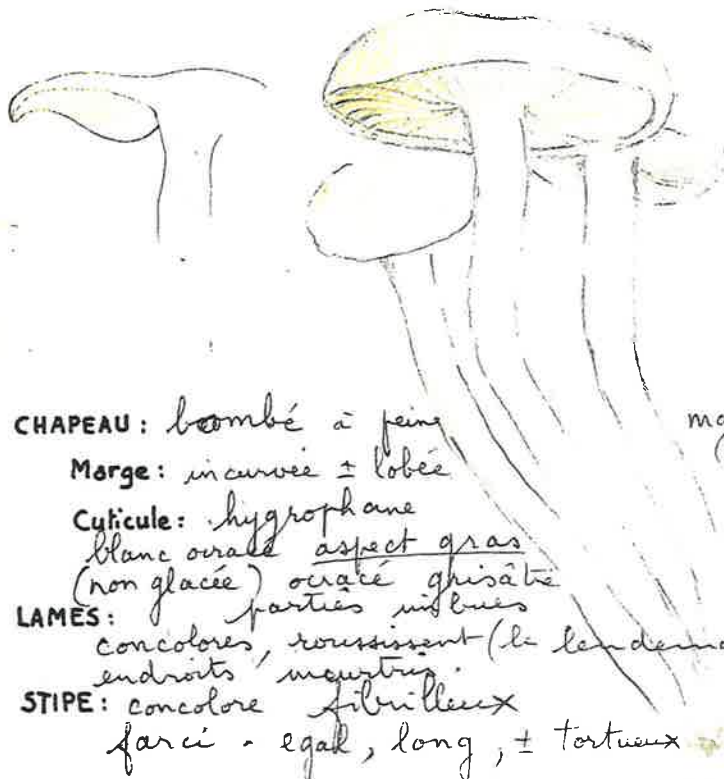 CHAPEAU: bombé à peine
Marge: incurvée ± lobée
Cuticule: hygrophane
blanc ocracé aspect gras
(non glacée) ocracé grisâtre
parties imbues
LAMES:
concolores, roussissent (le lendema
endroits meurtris.
STIPE: concolore fibrilleux
farci - egal, long, ± tortueux